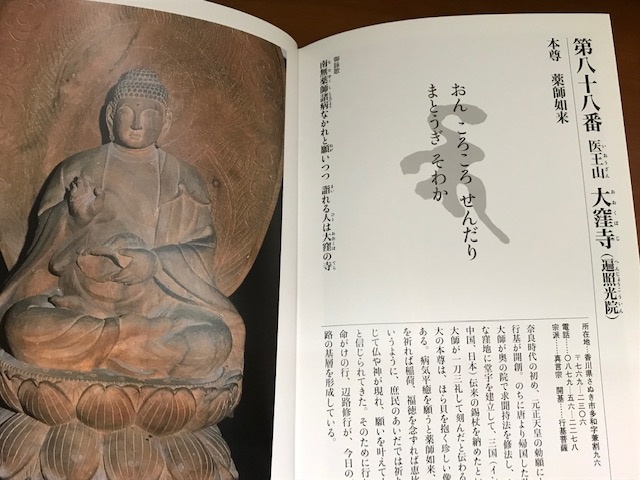 第八十八番 医王山 大窪寺(遍照光院)
いおうざん おおくぼじ へんじょうこういん
本尊 薬師如来
おん ころころ せんだり
まとうぎ そわか
御詠歌
南無薬師諸病なかれと願いつつ 詣れる人は大窪の寺
所在地…香川県さぬき市多和字兼割九六
〒七六九-二三〇六
電話…〇八七九-五六-二二七八
宗派…真言宗 開基…行基菩薩
奈良時代の初め、元正天皇の勅願に
行基が開創。のちに唐より帰国した
大師が奥の院で求聞持法を修し、
な窪地に堂宇を建立して、三国(イン
中国、日本)伝来の錫杖を納めたとい
大師が一刀三礼して刻んだと伝わる
大の本尊は、ほら貝を抱く珍しい像
ある。病気平癒を願うと薬師如来、
を祈れば稲荷、福徳を念ずれば恵比
いうように、庶民のあいだでは祈り
じて仏や神が現れ、願いを叶えて
と信じられてきた。そのために行
命がけの行、辺路修行が、今日の
路の基層を形成している。